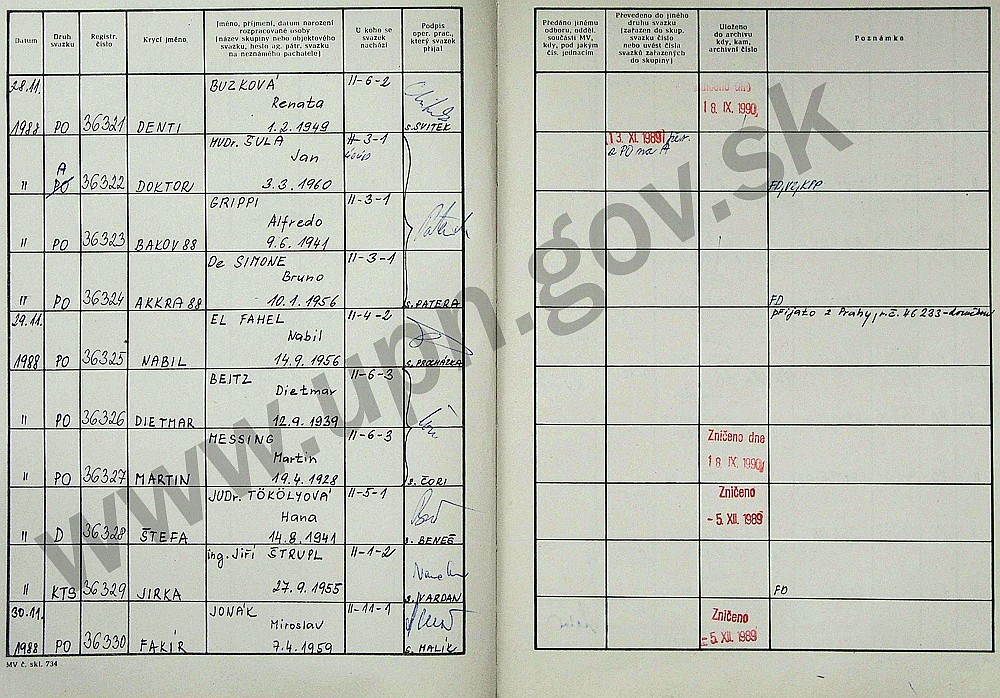 Datum
Druh svazku
Registr. číslo
Krycí jméno
Jméno, příjmení, datum narození
rozpracované osoby
(název skupiny nebo objektového
svazku, heslo ag. pátr. svazku
na neznámého pachatele)
U koho se
svazek
nachází
Podpis
oper. prac.,
který svazek
přijal
Předáno jinému
odboru, odděl.
součásti MV,
kdy, pod jakým
čís. jednacím
Převedeno do jiného
druhu svazku
(zařazen do skup.
svazku číslo
nebo uvést čísla
svazků zařazených
do skupiny)
Uloženo
do archivu
kdy, kam,
archivní číslo
Poznámka
28.11. BUZKOVÁ II-6-2
Renata
1988 PO 36321 DENTI 1.2.1949 s. SVITEK
18. IX. 1990
MUDr. ŠULA II-3-1
A Jan
" PO 36322 DOKTOR 3.3.1960
13. XI. 1989
z PO na A
GRIPPI II-3-1
Alfredo
" PO 36323 BAKOV 88 9.6.1941
De SIMONE II-3-1
Bruno
" PO 36324 AKKRA 88 10.1.1956 s. PATERA
FD
29.11. EL FAHEL II-4-2
Nabil
1988 PO 36325 NABIL 14.9.1956 s. PROCHÁZKA
přijato z Prahy, r.č. 46233
BEITZ II-6-3
Dietmar
" PO 36326 DIETMAR 12.9.1939
MESSING II-6-3
Martin
" PO 36327 MARTIN 19.4.1928 s. ČORI
Zničeno dne
18. IX. 1990
JUDr. TÖKÖLYOVÁ II-5-1
Hana
" D 36328 ŠTEFA 14.8.1941 s. BENEŠ
Zničeno
-5. XII. 1989
ing. Jiří ŠTRUPL II-1-2
" KTS 36329 JIRKA 27.9.1955 s. VARDAN
FD
30.11. JONÁK II-11-1
Miroslav
1988 PO 36330 FAKÍR 7.4.1959 s. MALÍK
Zničeno
-5. XII. 1989
MV č. skl. 734
www.upn.gov.sk